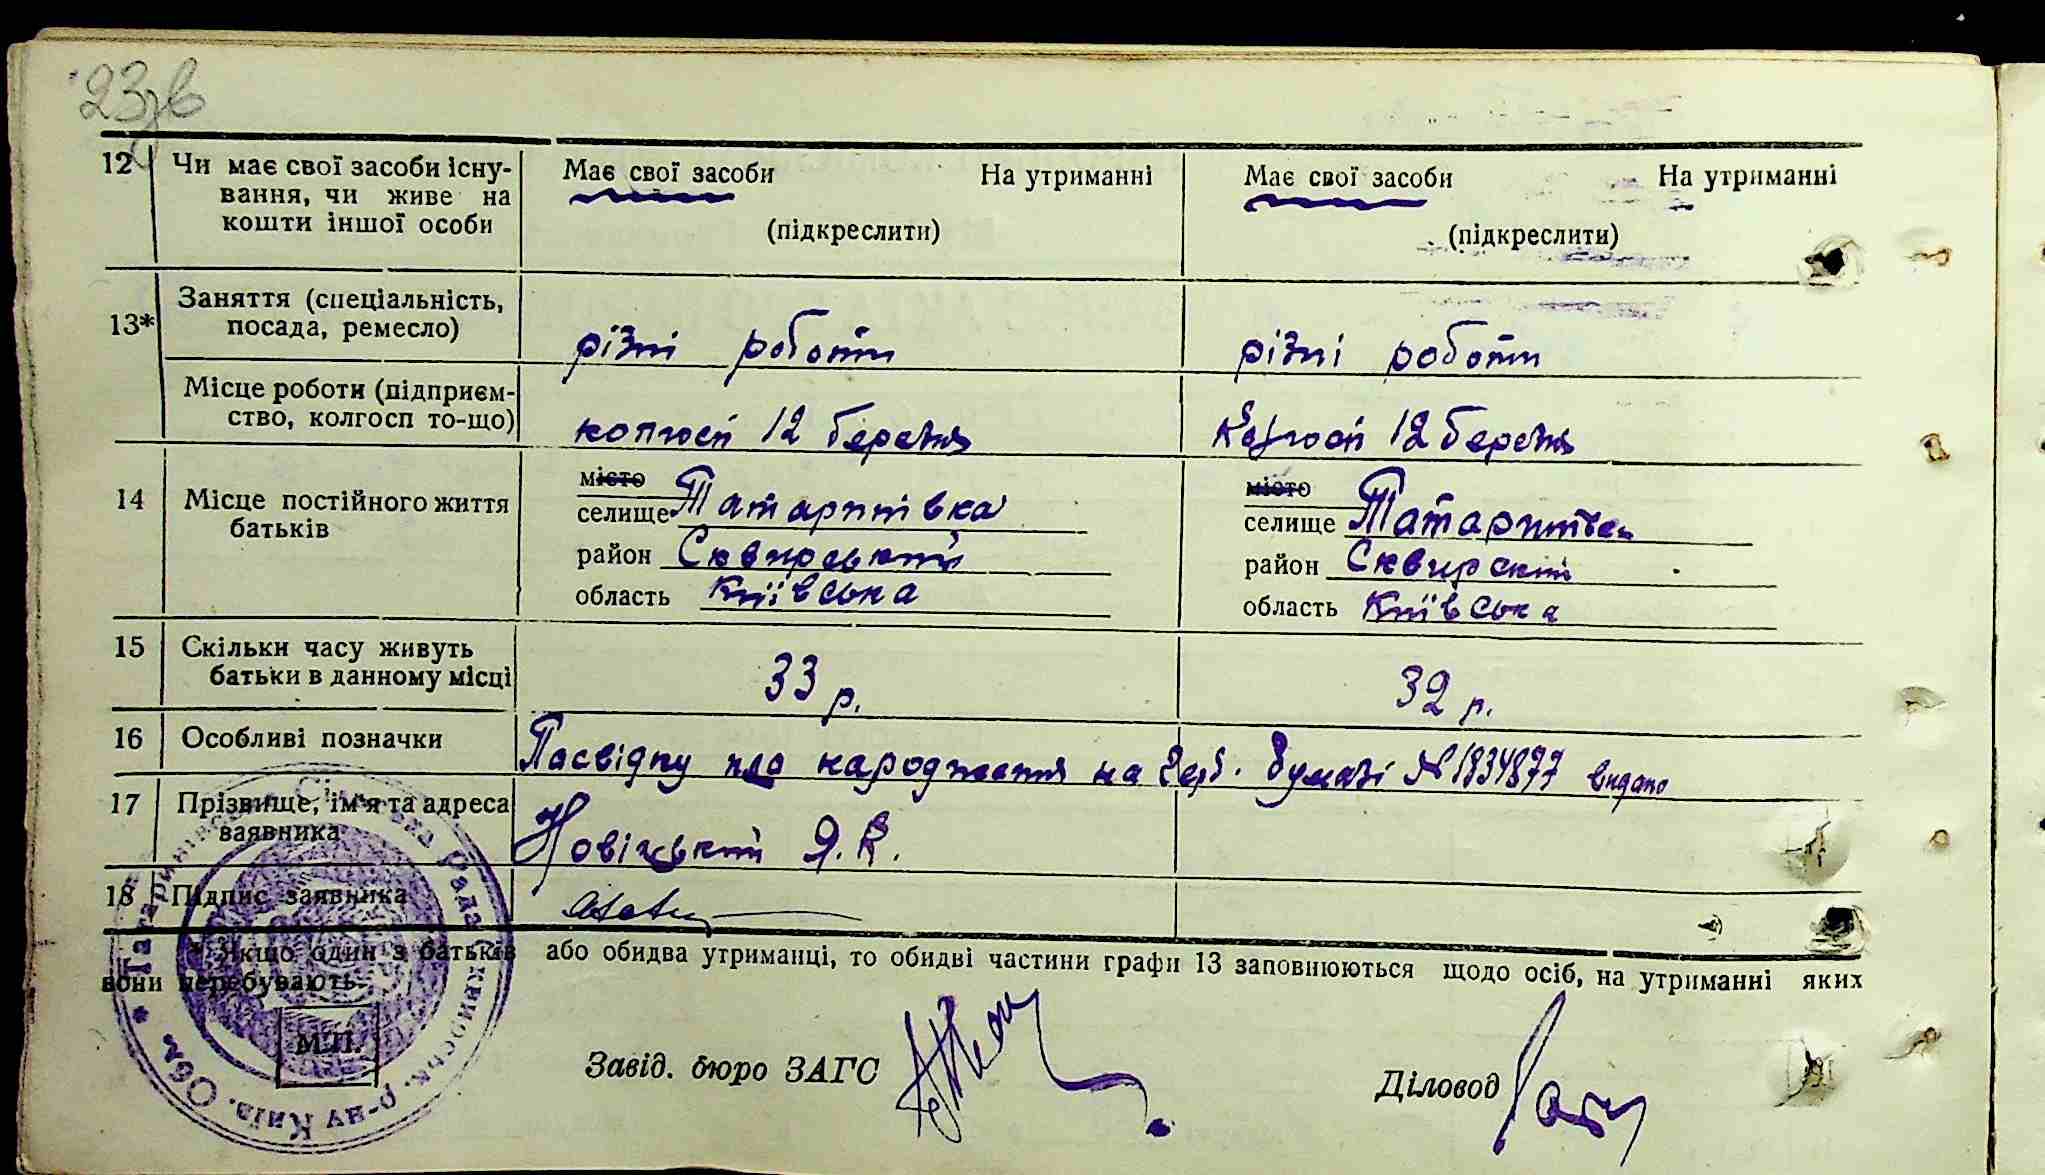 23зв
12 Чи має свої засоби існу-
вання, чи живе на
кошти іншої особи
Має свої засоби На утриманні
(підкреслити)
Має свої засоби На утриманні
(підкреслити)
13* Заняття (спеціальність,
посада, ремесло)
різні роботи
різні роботи
Місце роботи (підприєм-
ство, колгосп то-що)
колгосп 12 березня
колгосп 12 березня
14 Місце постійного життя
батьків
місто
селище Татаринівка
район Сквирський
область Київська
місто
селище Татаринівка
район Сквирский
область Київська
15 Скільки часу живуть
батьки в данному місці
33 р.
32 р.
16 Особливі позначки
Посвідку про народження на герб. бумазі № 1834877 видано
17 Прізвище, ім'я та адреса
заявника
Новіцький Я. К.
18 Підпис заявника
* Якщо один з батьків або обидва утриманці, то обидві частини графи 13 заповнюються щодо осіб, на утриманні яких
вони перебувають.
М.П.
Завід. бюро ЗАГС
Діловод
Сільська Рада
р-ну Київ. Обл.